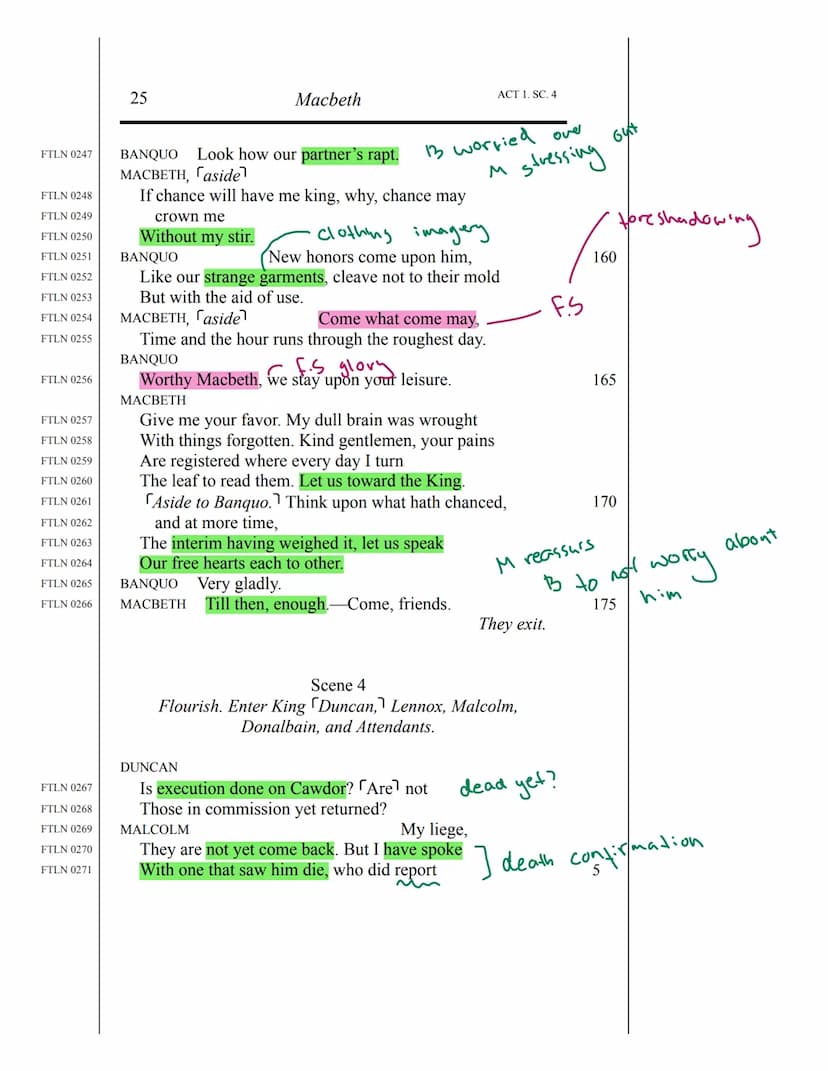 25 Macbeth ACT 1. SC. 4
FTLN 0247 BANQUO Look how our partner’s rapt. B worried over M stressing out
MACBETH, ⌜aside⌝
FTLN 0248 If chance will have me king, why, chance may
FTLN 0249 crown me
foreshadowing
FTLN 0250 Without my stir. clothing imagery
FTLN 0251 BANQUO New honors come upon him, 160
FTLN 0252 Like our strange garments, cleave not to their mold
FTLN 0253 But with the aid of use.
F.S
FTLN 0254 MACBETH, ⌜aside⌝ Come what come may,
FTLN 0255 Time and the hour runs through the roughest day.
BANQUO
F.S glory
FTLN 0256 Worthy Macbeth, we stay upon your leisure. 165
MACBETH
FTLN 0257 Give me your favor. My dull brain was wrought
FTLN 0258 With things forgotten. Kind gentlemen, your pains
FTLN 0259 Are registered where every day I turn
FTLN 0260 The leaf to read them. Let us toward the King.
FTLN 0261 ⌜Aside to Banquo.⌝ Think upon what hath chanced, 170
FTLN 0262 and at more time,
FTLN 0263 The interim having weighed it, let us speak
FTLN 0264 Our free hearts each to other.
M reassurs
B to not worry about
him
FTLN 0265 BANQUO Very gladly.
FTLN 0266 MACBETH Till then, enough.—Come, friends. 175
They exit.
Scene 4
Flourish. Enter King ⌜Duncan,⌝ Lennox, Malcolm,
Donalbain, and Attendants.
DUNCAN
FTLN 0267 Is execution done on Cawdor? ⌜Are⌝ not dead yet?
FTLN 0268 Those in commission yet returned?
FTLN 0269 MALCOLM My liege,
FTLN 0270 They are not yet come back. But I have spoke
death confirmation
FTLN 0271 With one that saw him die, who did report 5